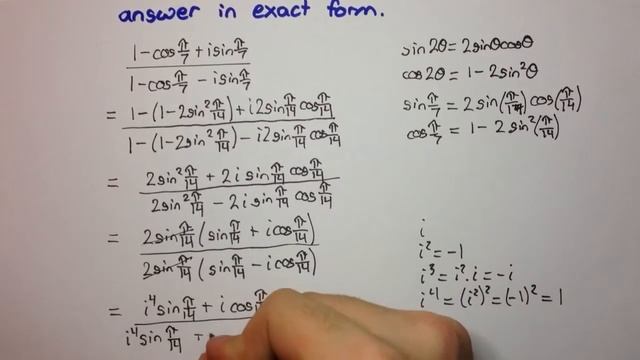 answer in exact form.
1-cos π/7 + i sin π/7
1-cos π/7 - i sin π/7
= 1-(1-2sin² π/14) + i2sin π/14 cos π/14
1-(1-2sin² π/14) - i2sin π/14 cos π/14
= 2sin² π/14 + 2i sin π/14 cos π/14
2sin² π/14 - 2i sin π/14 cos π/14
= 2sin π/14 (sin π/14 + i cos π/14)
2sin π/14 (sin π/14 - i cos π/14)
= i⁴ sin π/14 + i cos π
i⁴ sin π/14 +
sin2θ = 2sinθcosθ
cos2θ = 1-2sin²θ
sin π/7 = 2sin(π/14) cos(π/14)
cos π/7 = 1-2sin²(π/14)
i
i² = -1
i³ = i².i = -i
i⁴ = (i²)² = (-1)² = 1